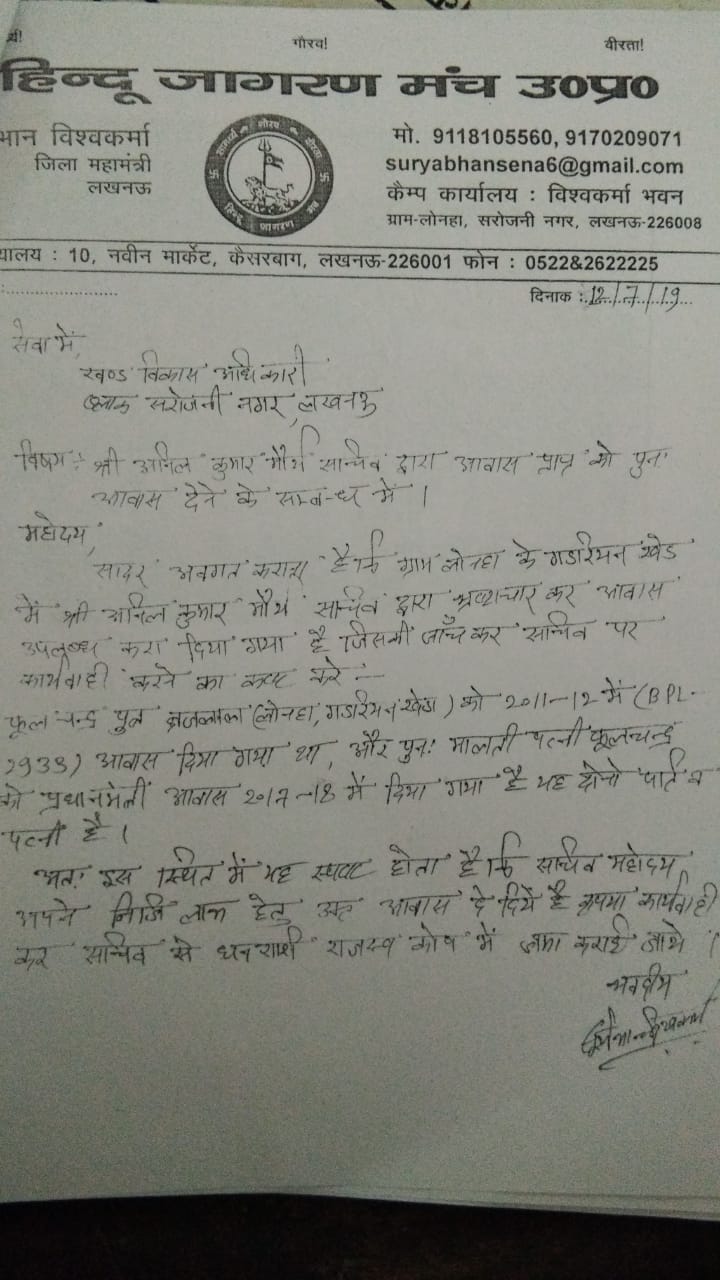 गौरव!
वीरता!
हिन्दू जागरण मंच उ०प्र०
भान विश्वकर्मा
जिला महामंत्री
लखनऊ
मो. 9118105560, 9170209071
suryabhansena6@gmail.com
कैम्प कार्यालय : विश्वकर्मा भवन
ग्राम-लोनहा, सरोजनी नगर, लखनऊ-226008
यालय : 10, नवीन मार्केट, कैसरबाग, लखनऊ-226001 फोन : 0522&2622225
दिनाक : 12/7/19
सेवा में,
खण्ड विकास अधिकारी
ब्लाक सरोजनी नगर, लखनऊ
विषय : श्री अनिल कुमार मौर्य सचिव द्वारा आवास प्राप्त को पुनः
आवास देने के सम्बन्ध में ।
महोदय,
सादर अवगत कराना है कि ग्राम लोनहा के गडरियन खेडा
में श्री अनिल कुमार मौर्य सचिव द्वारा भ्रष्टाचार कर आवास
उपलब्ध करा दिया गया है जिसकी जाँच कर सचिव पर
कार्यवाही करने का कष्ट करे :-
फूल चन्द्र पुत्र ब्रजलाल (लोनहा, गडरियन खेडा) को 2011-12 में (BPL-
2933) आवास दिया गया था, और पुनः मालती पत्नी फूलचन्द्र
को प्रधानमंत्री आवास 2017-18 में दिया गया है यह दोनो पति व
पत्नी है ।
अतः इस स्थित में यह स्पष्ट होता है कि सचिव महोदय
अपने निजि लाभ हेतु आवास दे दिये है कृपया कार्यवाही
कर सचिव से धनराशी राजस्व कोष में जमा कराई जाये ।
भवदीय